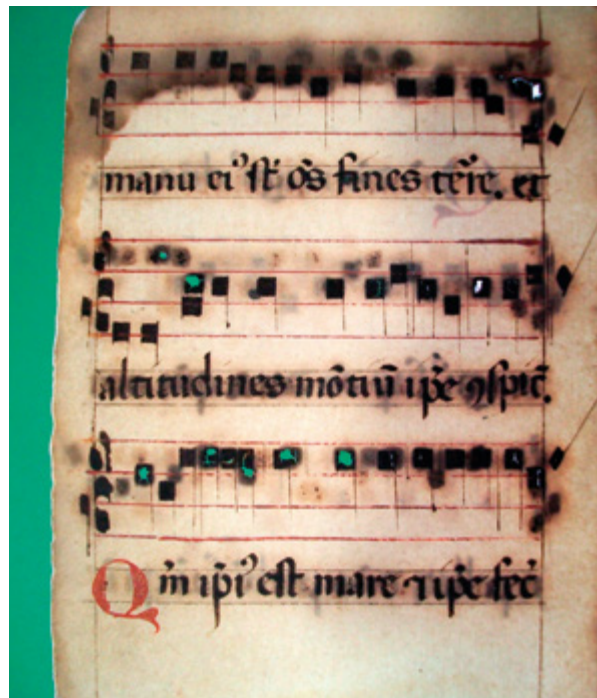 manu eiꝰ st̄ oēs fines tēre. et
altitudines mōtiū ip̄e ꝯspic̄.
Qm̄ ip̄iꝰ est mare ⁊ ip̄e fec̄